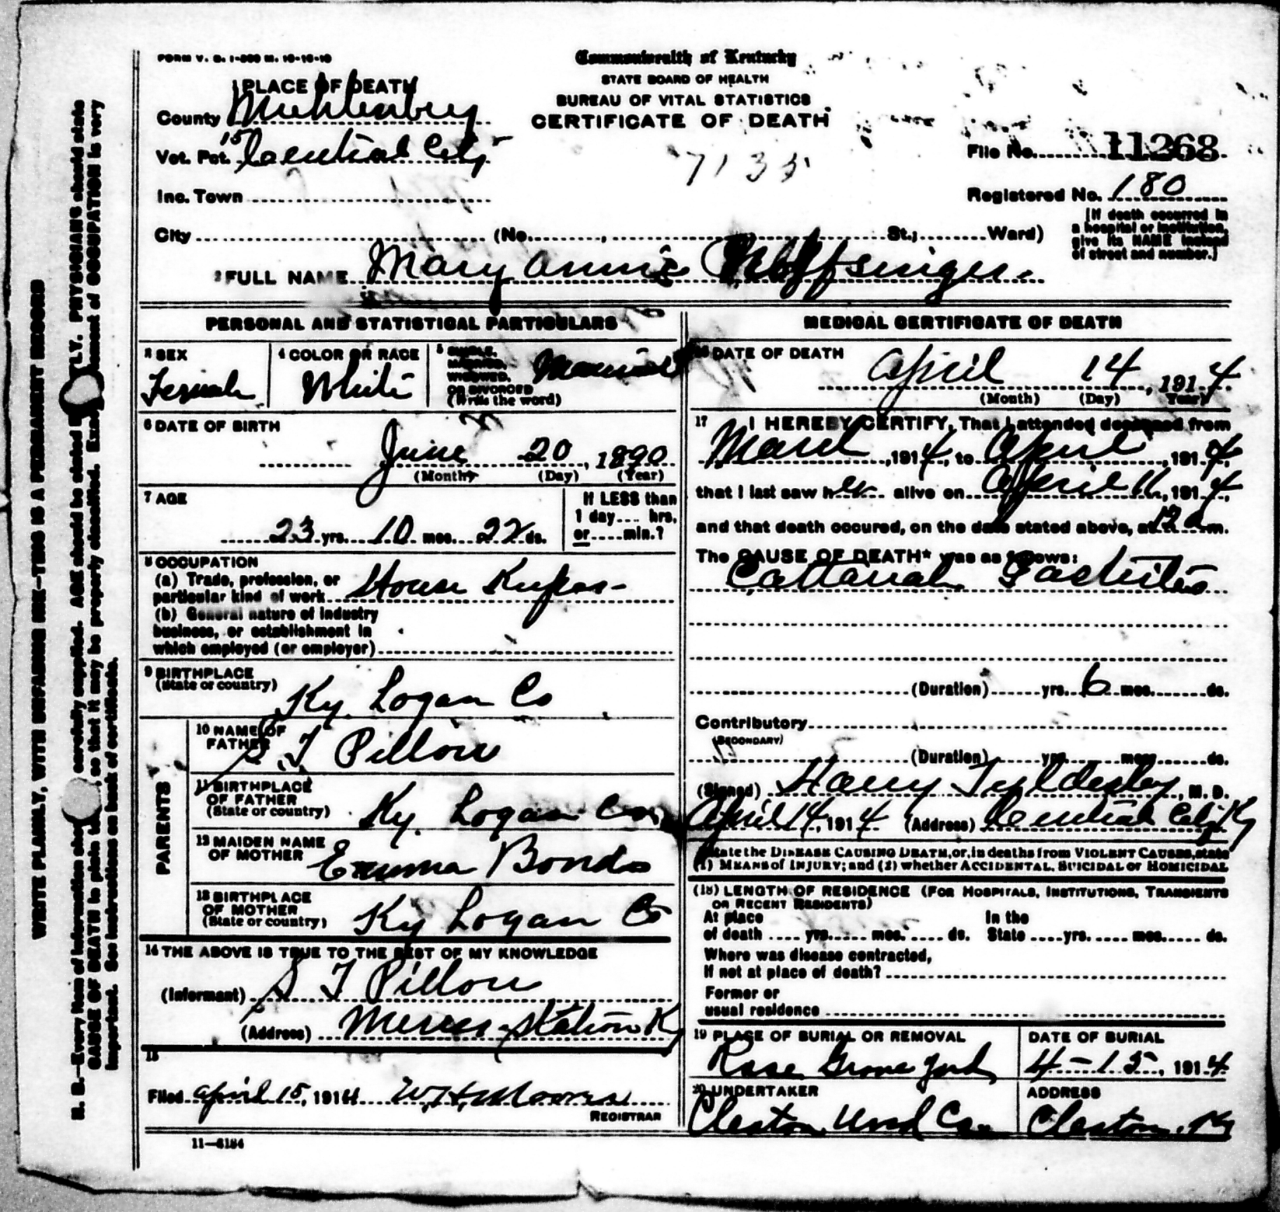 FORM V. S. 1-
Commonwealth of Kentucky
STATE BOARD OF HEALTH
BUREAU OF VITAL STATISTICS
CERTIFICATE OF DEATH
1 PLACE OF DEATH
County Muhlenberg
Vot. Pct. 15 Central City
Inc. Town
City (No. , St.; Ward)
7135
File No. 11268
Registered No. 180
[If death occurred in a hospital or institution, give its NAME instead of street and number.]
2 FULL NAME Mary Annie Noffsinger
PERSONAL AND STATISTICAL PARTICULARS
3 SEX
Female
4 COLOR OR RACE
White
5 SINGLE, MARRIED, WIDOWED, OR DIVORCED (Write the word)
Married
6 DATE OF BIRTH
June 20, 1890
(Month) (Day) (Year)
7 AGE
23 yrs. 10 mos. 22 ds.
If LESS than 1 day.... hrs. or.... min.?
8 OCCUPATION
(a) Trade, profession, or particular kind of work House
(b) General nature of industry
business, or establishment in
which employed (or employer)
9 BIRTHPLACE
(State or country)
Ky. Logan Co
PARENTS
10 NAME OF FATHER
S T Pillow
11 BIRTHPLACE OF FATHER
(State or country)
Ky. Logan Co.
12 MAIDEN NAME OF MOTHER
Emma Bonds
13 BIRTHPLACE OF MOTHER
(State or country)
Ky Logan Co
14 THE ABOVE IS TRUE TO THE BEST OF MY KNOWLEDGE
(Informant) S T Pillow
(Address) Station Ky
15
Filed April 15, 1914 W.H. Moores
REGISTRAR
11—6184
MEDICAL CERTIFICATE OF DEATH
16 DATE OF DEATH
April 14, 1914
(Month) (Day) (Year)
17 I HEREBY CERTIFY, That I attended deceased from
March, 1914, to April, 1914,
that I last saw her alive on April 11, 1914,
and that death occured, on the date stated above, at 12 m.
The CAUSE OF DEATH* was as follows:
Catarrah Gastritis
(Duration) yrs. 6 mos. ds.
Contributory
(SECONDARY)
(Duration) yrs. mos. ds.
(Signed) Harry Tyldesley, M. D.
April 14, 1914 (Address) Central City Ky
*State the DISEASE CAUSING DEATH, or, in deaths from VIOLENT CAUSES, state
(1) MEANS of INJURY; and (2) whether ACCIDENTAL, SUICIDAL or HOMICIDAL
(18) LENGTH OF RESIDENCE (FOR HOSPITALS, INSTITUTIONS, TRANSIENTS
OR RECENT RESIDENTS)
At place of death .... yrs. .... mos. .... ds. In the State .... yrs. .... mos. .... ds.
Where was disease contracted,
If not at place of death?
Former or
usual residence
19 PLACE OF BURIAL OR REMOVAL
Rose Grove Yard
DATE OF BURIAL
4-15-, 1914
20 UNDERTAKER
Cleaton Co.
ADDRESS
Cleaton, Ky
WRITE PLAINLY, WITH UNFADING INK—THIS IS A PERMANENT RECORD
N. B.—Every item of information should carefully supplied. AGE should be stated EXACTLY. PHYSICIANS should state
CAUSE OF DEATH in plain so that it may be properly classified. Exact statement of OCCUPATION is very
important. See instructions on back of certificate.